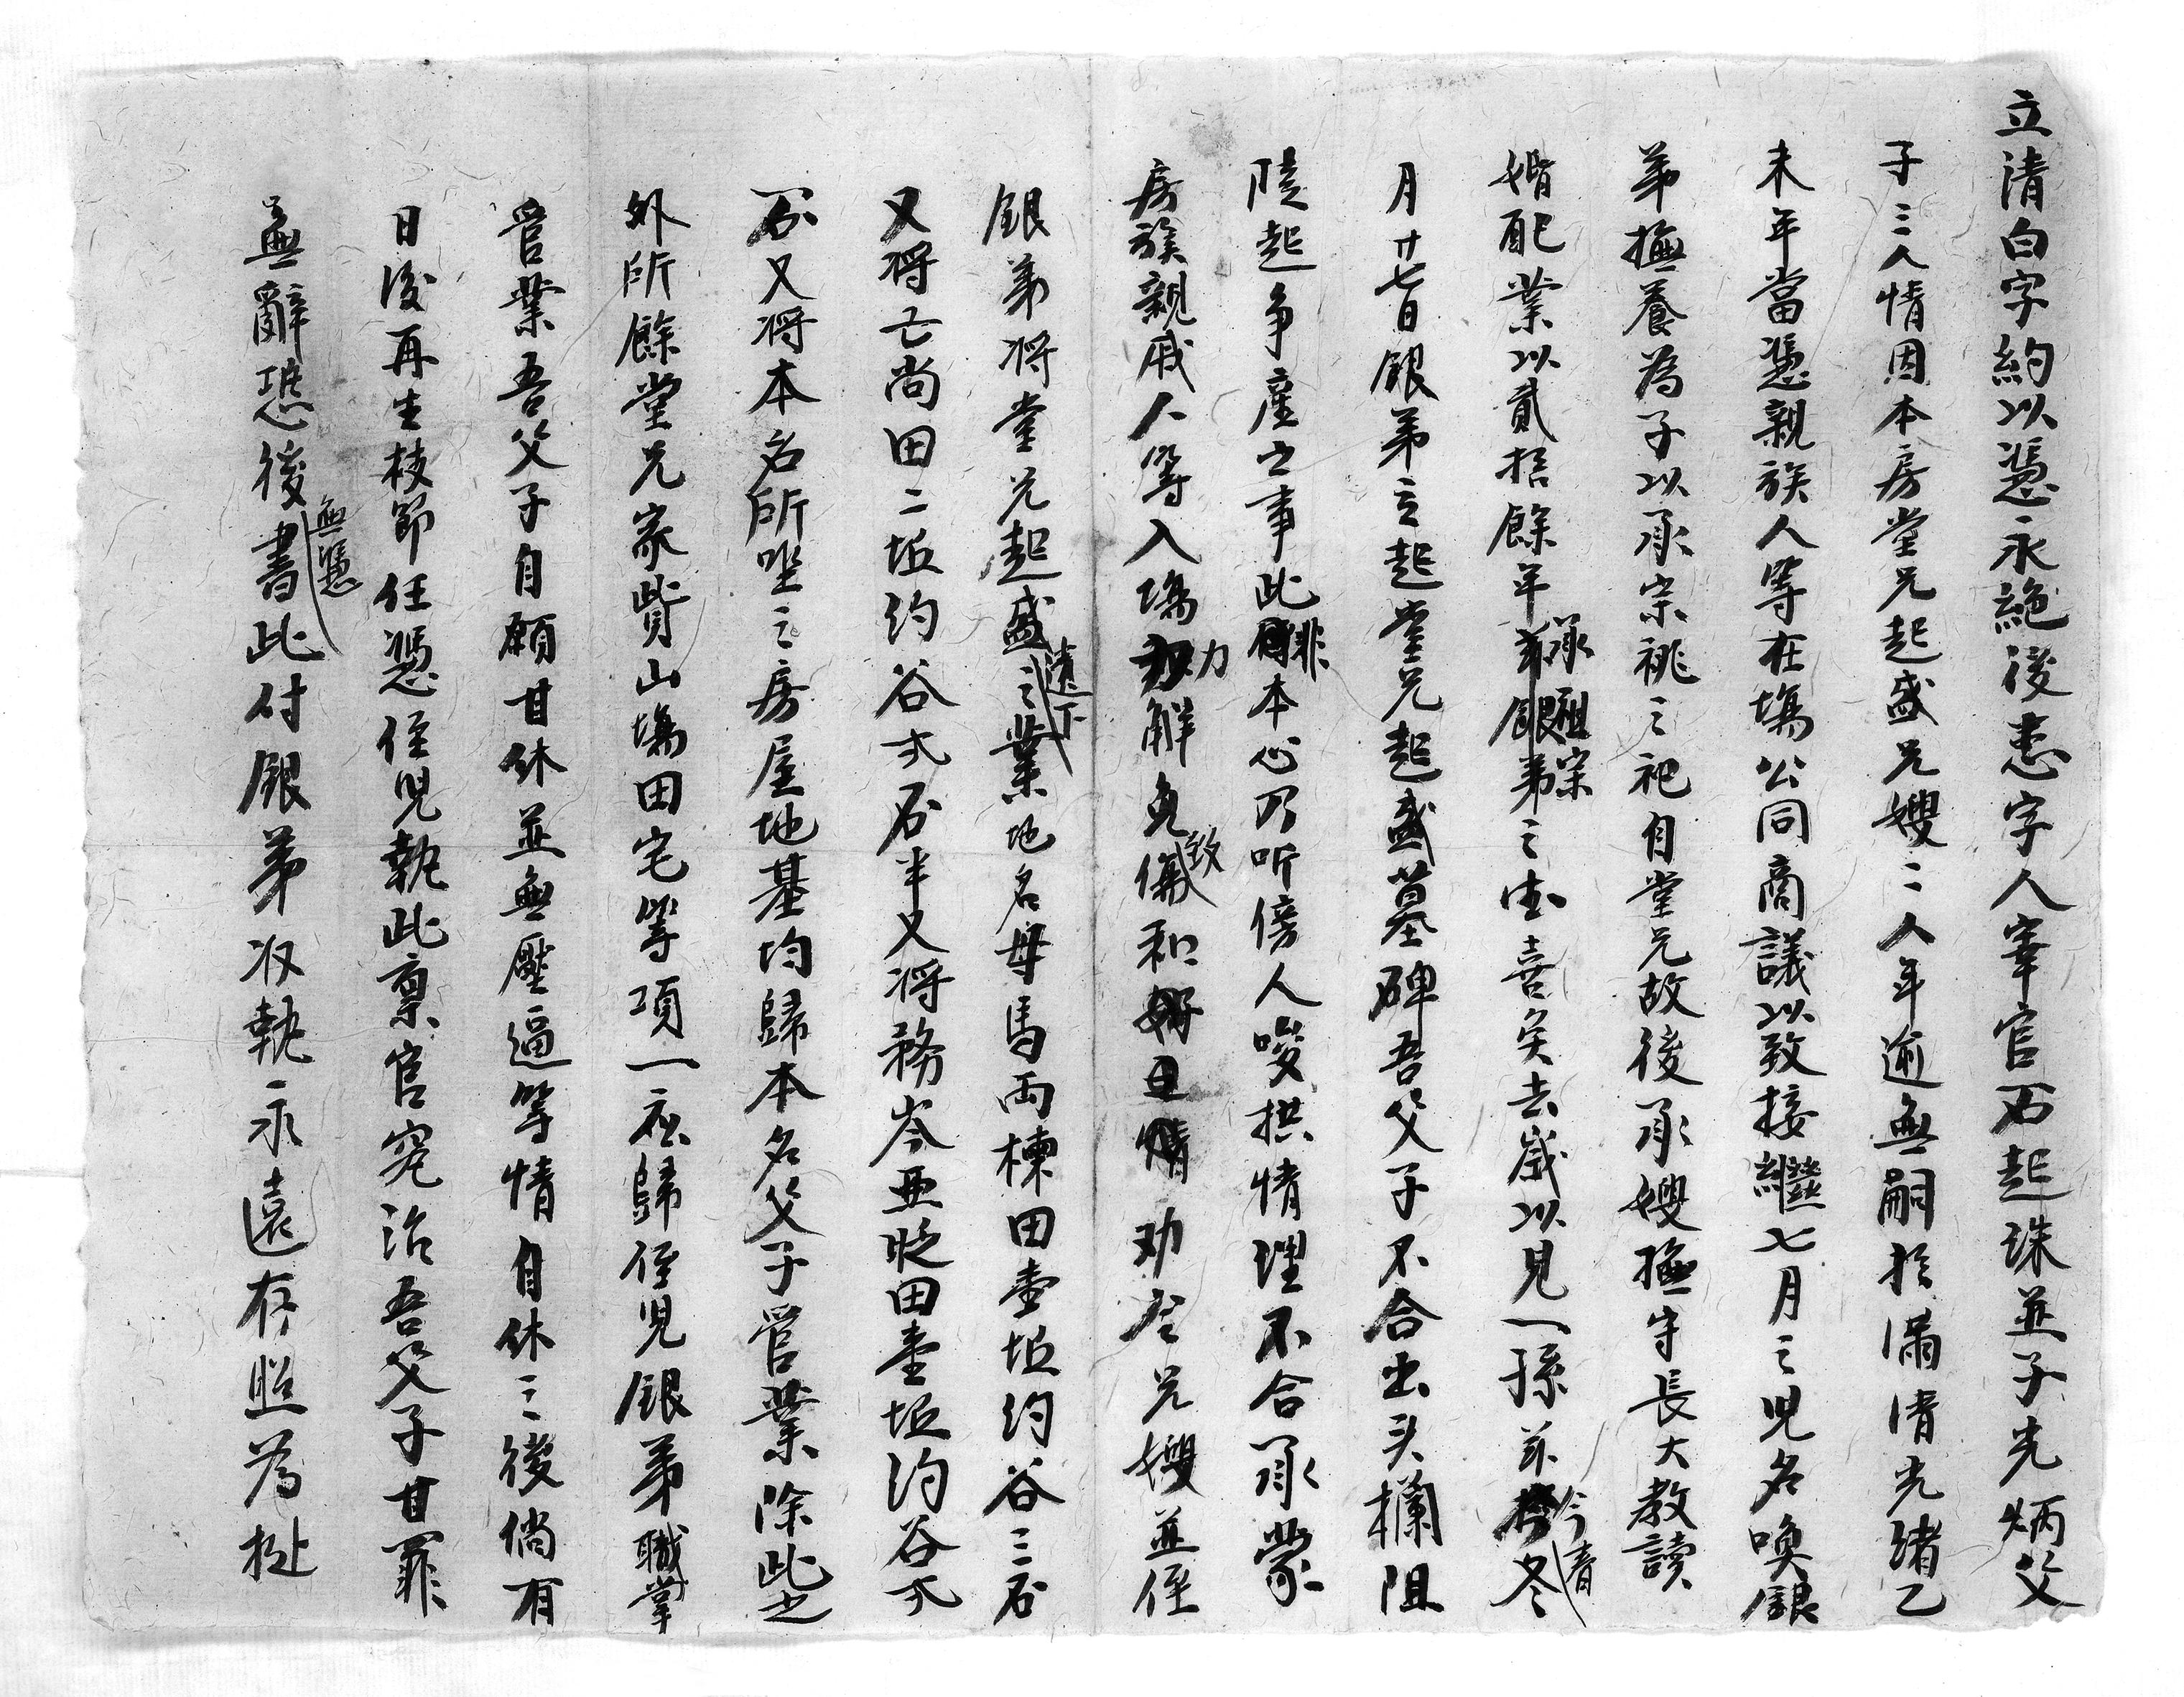 立清白字約以憑永絕後患字人宰官石起珠並子光炳父
子三人情因本房堂兄起盛兄嫂二人年逾無嗣於滿清光緒乙
未年當憑親族人等在塲公同商議以致接繼七月之兒名喚銀
弟撫養為子以承宗祧之祀自堂兄故後承嫂撫守長大教讀
婚配業以貳拾餘年承祖宗之德喜矣去歲以見一孫今春
月廿七日銀弟立起堂兄起盛墓碑吾父子不合出头攔阻
陡起争產之事此非本心乃听傍人唆拱情理不合承蒙
房族親戚人等入塲力解免致儀和好且情劝座兄嫂並侄
銀弟将堂兄起盛遺下之業地名母馬両棟田壹坵约谷三石
又将亡尚田二坵约谷弍石半又将務岑亜贬田壹坵约谷弍
石又将本名所坐之房屋地基均歸本名父子管業除此之
外所餘堂兄家貲山塲田宅等項一祘歸侄兒銀弟職掌
管業吾父子自願甘休並無壓逼等情自休之後倘有
日後再生枝節任憑侄兒執此禀官究治吾父子甘罪
無辭恐後無憑書此付銀弟収執永遠存照為㨿